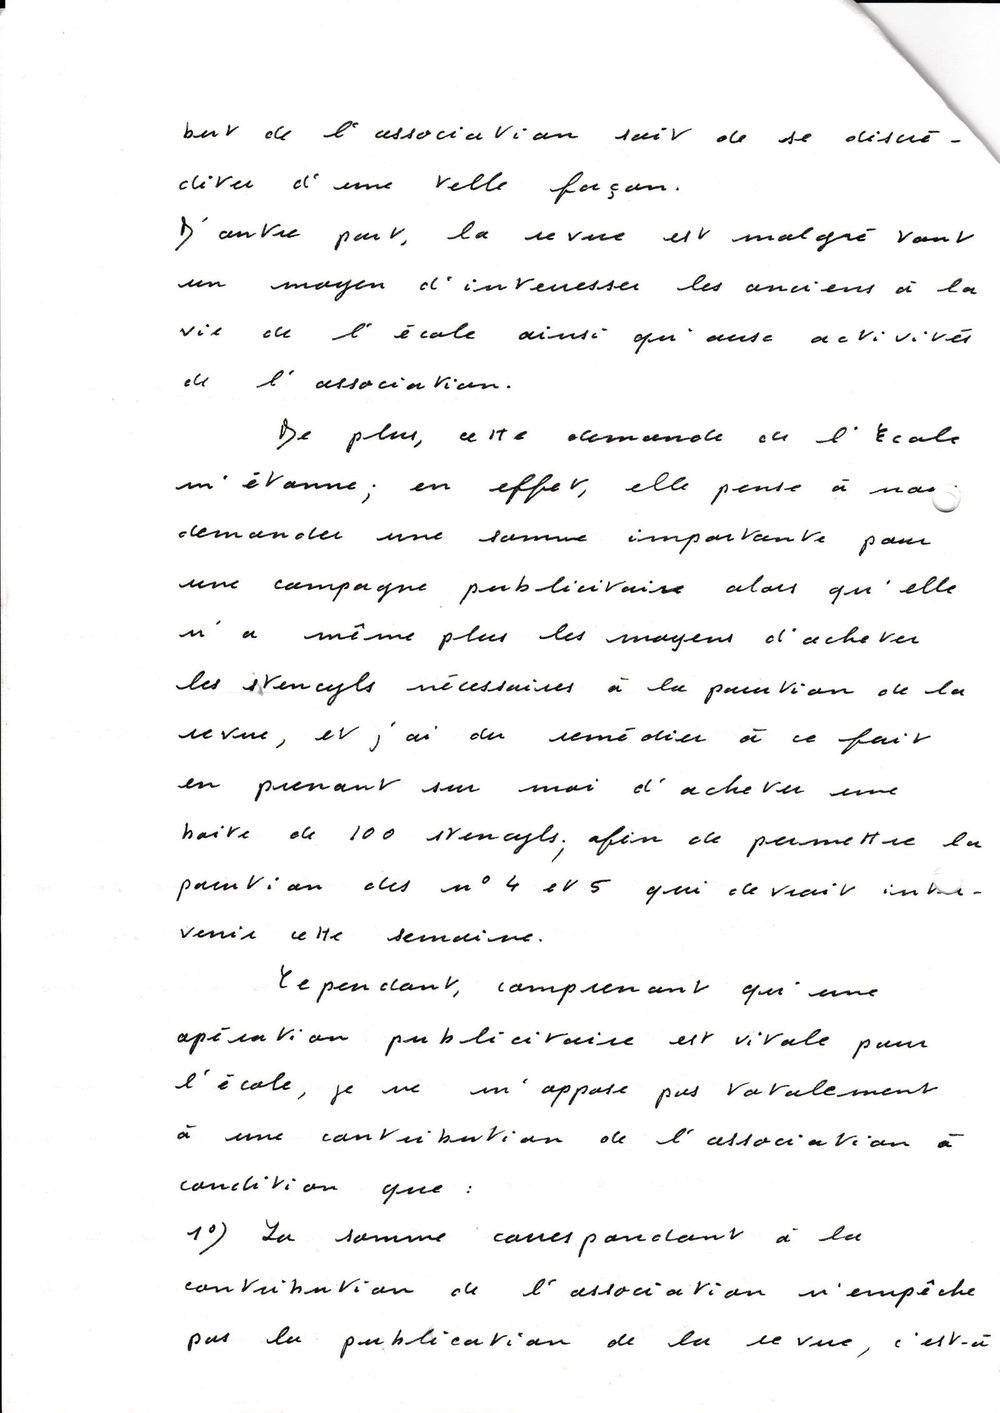 but de l'association soit de se discré-
diter d'une telle façon.
D'autre part, la revue est malgré tout
un moyen d'interresser les anciens à la
vie de l'école ainsi qu'aux activités
de l'association.
De plus, cette demande de l'Ecole
m'étonne; en effet, elle pense à nous
demander une somme importante pour
une campagne publicitaire alors qu'elle
n'a même plus les moyens d'acheter
les stencyls nécessaires à la parution de la
revue, et j'ai du remédier à ce fait
en prenant sur moi d'acheter une
boite de 100 stencyls; afin de permettre la
parution des n° 4 et 5 qui devrait inter-
venir cette semaine.
Cependant, comprenant qu'une
opération publicitaire est vitale pour
l'école, je ne m'oppose pas totalement
à une contribution de l'association à
condition que :
1°) La somme correspondant à la
contribution de l'association n'empêche
pas la publication de la revue, c'est-à